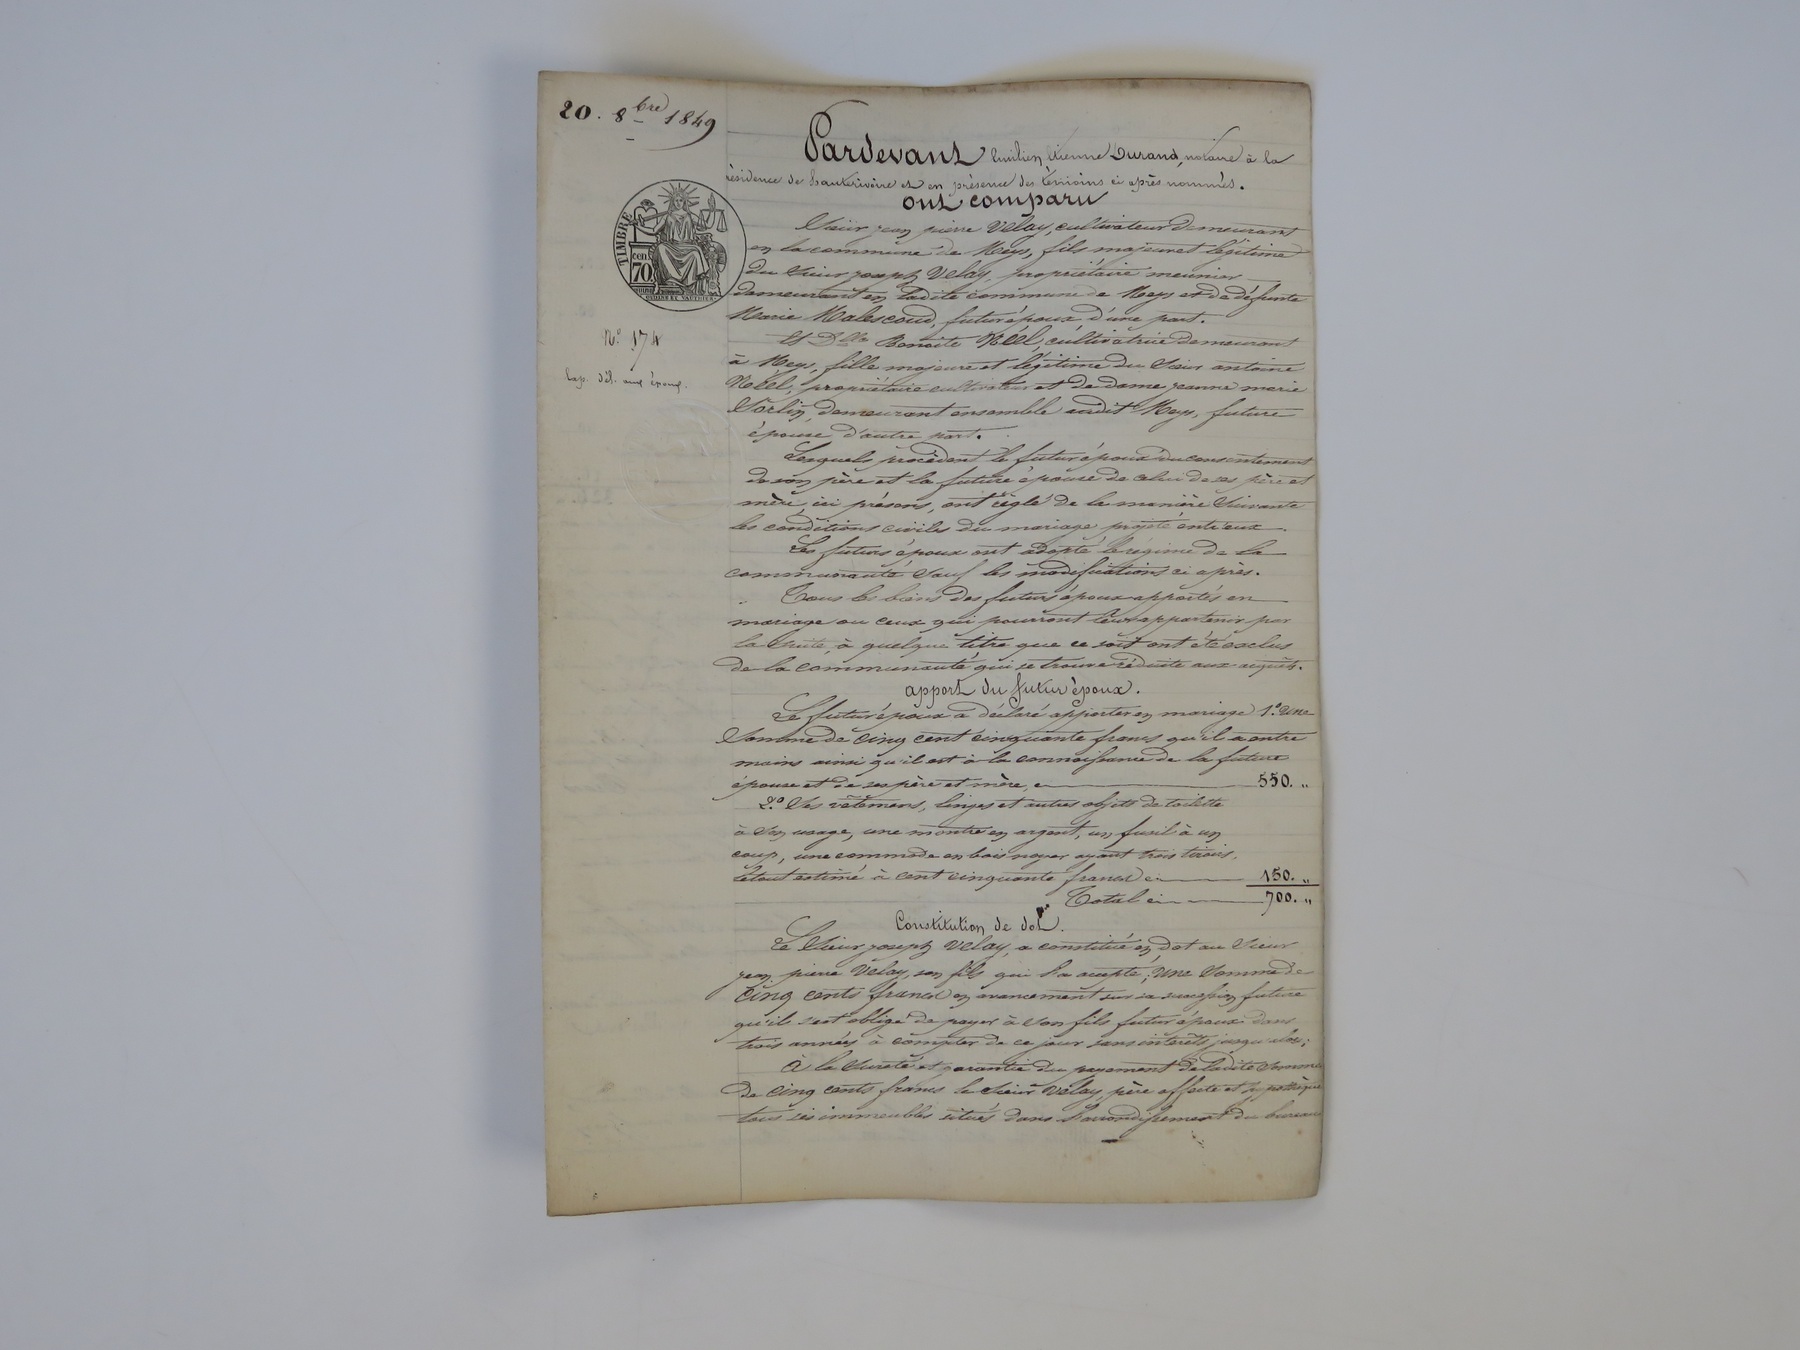 20. 8bre 1849
Pardevant Etienne Durand, notaire à la
résidence de hauterivoire et en présence des témoins ci après nommés.
ont comparu
Sieur jean pierre Velay, cultivateur demeurant
en la commune de Meys, fils majeur et légitime
du Sieur joseph Velay, propriétaire meunier
demeurant en ladite commune de Meys et de défunte
Marie Malescoud, futur époux d'une part.
Et Dlle Benoite Néel, cultivatrice demeurant
à Meys, fille majeure et légitime du Sieur antoine
Néel, propriétaire cultivateur et de dame jeanne marie
Sorlin, demeurant ensemble audit Meys, future
épouse d'autre part.
Lesquels procédant le futur époux du consentement
de son père et la future épouse de celui de ses père et
mère, ici présens, ont réglé de la manière Suivante
les conditions civiles du mariage projeté entr'eux.
Les futurs époux ont adopté le régime de la
communauté Sauf les modifications ci après.
Tous les biens des futurs époux apportés en
mariage ou ceux qui pourront leur appartenir par
la Suite, à quelque titre que ce soit ont été exclus
de la communauté qui se trouve réduite aux acquêts.
apport du futur époux.
Le futur époux a déclaré apporter en mariage 1.º une
Somme de cinq cent cinquante francs qu'il a entre
mains ainsi qu'il est à la connoissance de la future
épouse et de ses père et mère, ci 550. "
2.º Ses vêtemens, linges et autres objets de toilette
à son usage, une montre en argent, un fusil à un
coup, une commode en bois noyer ayant trois tiroirs,
le tout estimé à cent cinquante francs ci 150. "
Total ci 700. "
Constitution de dot.
Le Sieur joseph Velay, a constitué en dot au Sieur
jean pierre Velay, son fils qui l'a accepté, une Somme de
cinq cents francs en avancement sur sa succession future
qu'il s'est obligé de payer à son fils futur époux dans
trois années à compter de ce jour sans intérêts jusqu'alors;
à la Sureté et garantie du payement de ladite Somme
de cinq cents francs le Sieur Velay, père affecte et hypothèque
tous ses immeubles situés dans l'arrondissement du bureau
TIMBRE
cen
70
Nº 174
Exp. dél. aux époux.